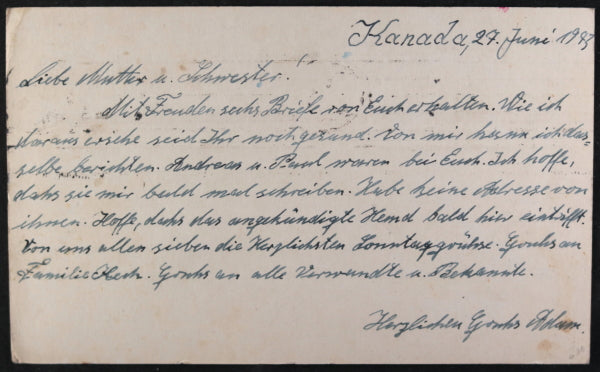 Kanada, 27. Juni 194
Liebe Mutter u. Schwester.
Mit Freuden sechs Briefe von Euch erhalten. Wie ich
daraus ersehe seid Ihr noch gesund. Von mir kann ich das=
selbe berichten. Andreas u. Paul waren bei Euch. Ich hoffe,
dahs sie mir bald mal schreiben. Habe keine Adresse von
ihnen. Hoffe, dahs das angekündigte Hemd bald hier eintrifft.
Von uns allen sieben die Herzlichsten Sonntagsgrühse. Gruhs an
Familie Gruhs an alle Verwandte u. Bekannte.
Herzlichen Gruhs Adam.